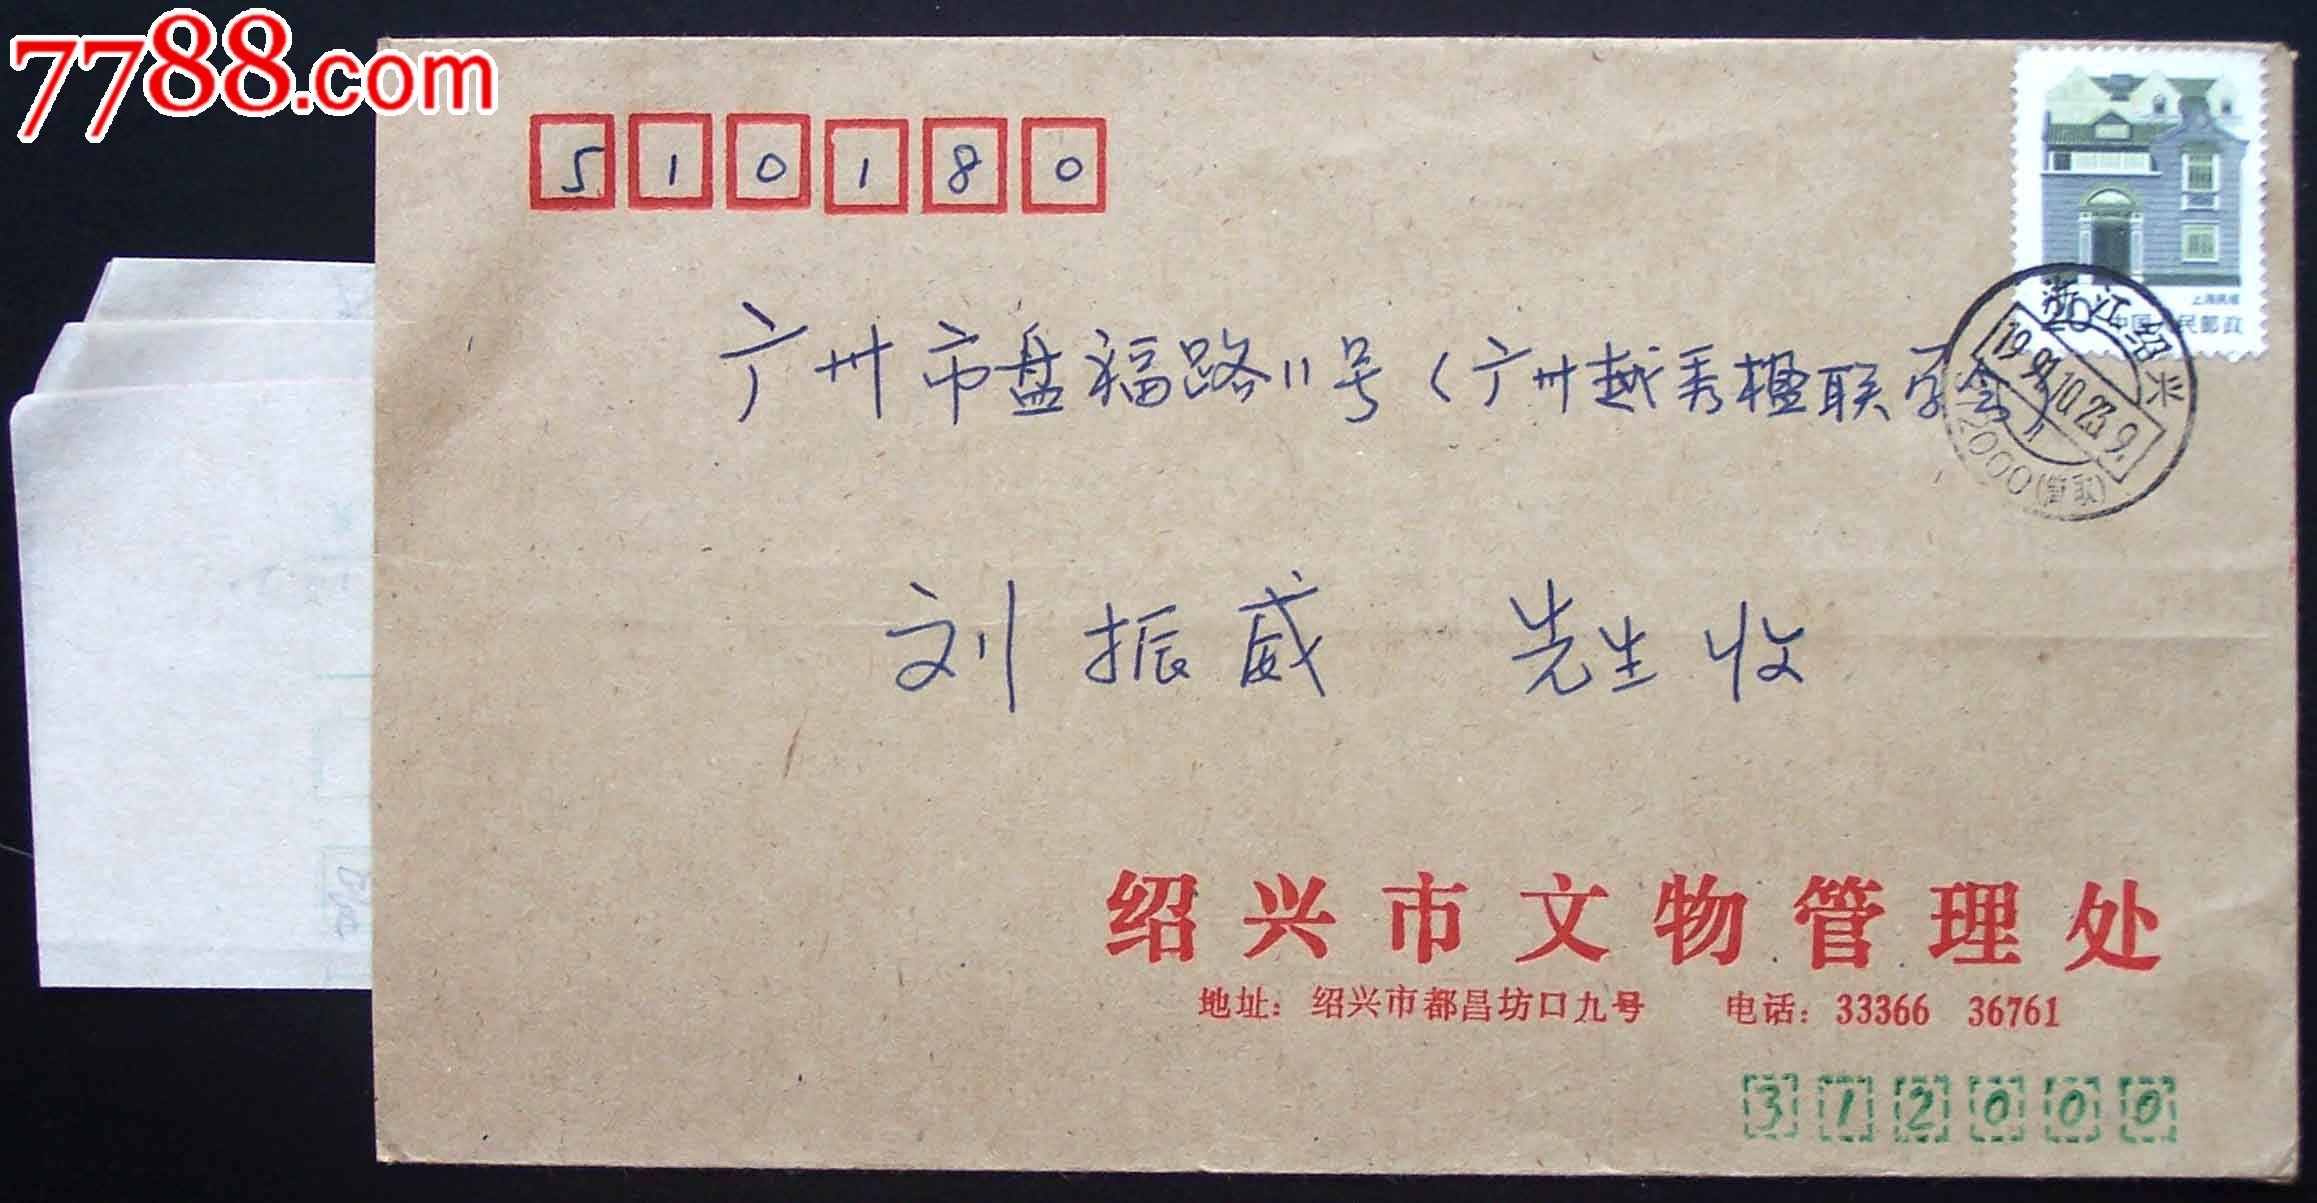 7788.com
510180
上海民居
20 中国人民邮政
浙江绍兴
19 10.23.9
312000(营收)
广州市盘福路11号(广州越秀楹联学会)
刘振威 先生收
绍兴市文物管理处
地址：绍兴市都昌坊口九号 电话：33366 36761
312000